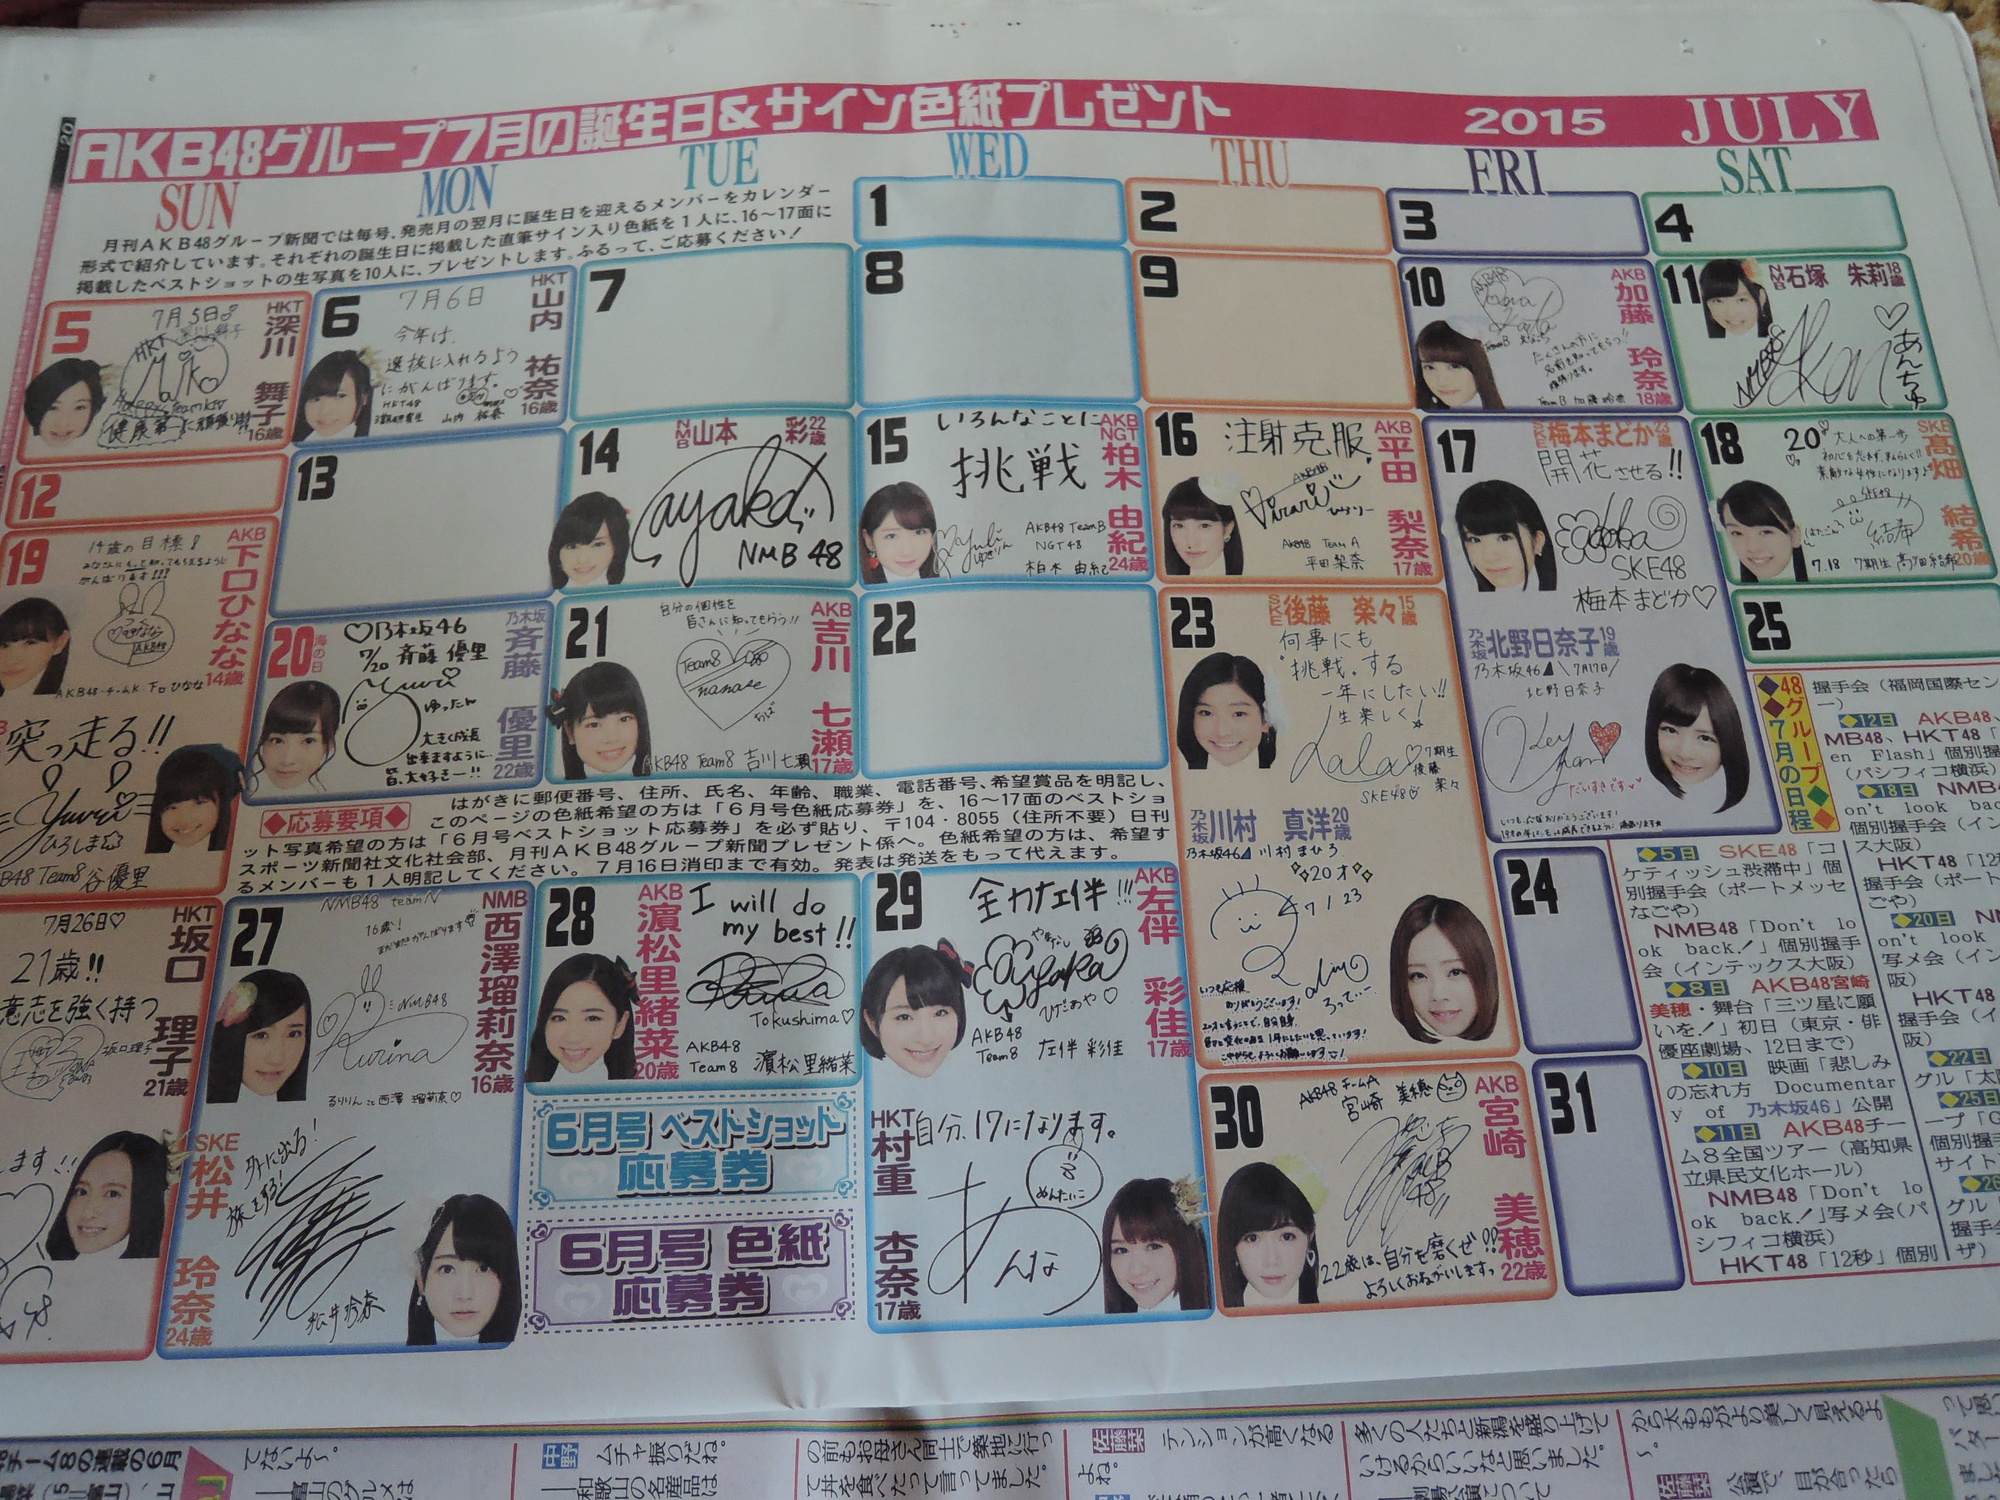 AKB48グループ7月の誕生日&サイン色紙プレゼント
2015 JULY
SUN MON TUE WED THU FRI SAT
月刊AKB48グループ新聞では毎号、発売月の翌月に誕生日を迎えるメンバーをカレンダー
形式で紹介しています。それぞれの誕生日に掲載した直筆サイン入り色紙を1人に、16〜17面に
掲載したベストショットの生写真を10人に、プレゼントします。ふるって、ご応募ください!
1
2
3
4
5
HKT 深川 舞子 16歳
7月5日
健康第一に頑張ります!!
6
HKT 山内 祐奈 16歳
7月6日
今年は、
選抜に入れるよう
にがんばります。
HKT48
山内 祐奈
7
8
9
10
AKB 加藤 玲奈 18歳
AKB48
TeamB 加藤玲奈
11
NMB 石塚 朱莉 18歳
NMB48
あんちゅ
12
13
14
NMB 山本 彩 22歳
ayaka
NMB48
15
AKB NGT 柏木 由紀 24歳
いろんなことに
挑戦
AKB48 TeamB
NGT48
柏木 由紀
16
AKB 平田 梨奈 17歳
注射克服
AKB48
AKB48 TeamA
平田 梨奈
17
SKE 梅本まどか 23歳
開花させる!!
SKE48
梅本まどか♡
乃木坂 北野日奈子 19歳
乃木坂46
7月17日
北野日奈子
だいすきです♥
18
SKE 高畑 結希 20歳
20
大人への第一歩
SKE48
結希
7.18 7期生 高畑結希
19
AKB 下口ひなな 14歳
14歳の目標!
みなさんにもっと知ってもらえるように
がんばります!!!
AKB48
AKB48・チームK 下口ひなな
突っ走る!!
Yuuri
ひろしま
AKB48 Team8 谷優里
20
海の日
乃木坂 斉藤 優里 22歳
♡乃木坂46
7/20 斉藤 優里
Yuuri
ゆったん
大きく成長
出来ますように…
皆、大好きー!!
21
AKB 吉川 七瀬 17歳
自分の個性を
皆さんに知ってもらう!!
Team8
nanase
ちば
AKB48 Team8 吉川七瀬
22
23
SKE 後藤 楽々 15歳
何事にも
"挑戦"する
一年にしたい!!
一生楽しく!
Lala♡
7期生
後藤
楽々
SKE48
乃木坂 川村 真洋 20歳
乃木坂46 川村まひろ
20才
7/23
ろってぃー
いつも応援
ありがとうございます!
24
25
HKT 坂口 理子 21歳
7月26日♡
21歳!!
意志を強く持つ
坂口理子
27
NMB 西澤瑠莉奈 16歳
NMB48 teamN
16歳!
NMB48
Rurina
るりりんこと西澤 瑠莉奈♡
SKE 松井 玲奈 24歳
外に出る!
旅をする!
松井玲奈
28
AKB 濵松里緒菜 20歳
I will do
my best!!
Tokushima♡
AKB48
Team8 濵松里緒菜
29
AKB 左伴 彩佳 17歳
全力左伴!!!
やまなし
Ayaka
ひだあや♡
AKB48
Team8 左伴 彩佳
HKT 村重 杏奈 17歳
自分、17になります。
めんたいこ
あんな
30
AKB 宮崎 美穂 22歳
AKB48 チームA
宮崎 美穂
22歳は、自分を磨くぜ!!
よろしくおねがいします
31
◆応募要項◆ はがきに郵便番号、住所、氏名、年齢、職業、電話番号、希望賞品を明記し、
このページの色紙希望の方は「6月号色紙応募券」を、16〜17面のベストショ
ット写真希望の方は「6月号ベストショット応募券」を必ず貼り、〒104・8055(住所不要)日刊
スポーツ新聞社文化社会部、月刊AKB48グループ新聞プレゼント係へ。色紙希望の方は、希望す
るメンバーも1人明記してください。7月16日消印まで有効。発表は発送をもって代えます。
6月号 ベストショット
応募券
6月号 色紙
応募券
◆48グループ◆7月の日程◆
◆5日 SKE48「コ
ケティッシュ渋滞中」個
別握手会(ポートメッセ
なごや)
NMB48「Don't lo
ok back!」個別握手
会(インテックス大阪)
◆8日 AKB48宮崎
美穂・舞台「三ツ星に願
いを!」初日(東京・俳
優座劇場、12日まで)
◆10日 映画「悲しみ
の忘れ方 Documentar
y of 乃木坂46」公開
◆11日 AKB48チー
ム8全国ツアー(高知県
立県民文化ホール)
NMB48「Don't lo
ok back!」写メ会(パ
シフィコ横浜)
HKT48「12秒」個別
握手会(福岡国際セン
ー)
◆12日 AKB48、
MB48、HKT48「
en Flash」個別握
(パシフィコ横浜)
◆18日 NMB4
on't look bac
個別握手会(イン
ス大阪)
HKT48「12
握手会(ポート
ごや)
◆20日 N
on't look
写メ会(イン
阪)
HKT48
握手会(イ
阪)
◆22日
グル「太
◆25日
ープ「G
個別握手
サイト
◆26
グル
握手会
ザ)
チーム8の連載の6月
てないよ〜。
中野
ムチャ振りだね。
の前もお母さん同士で築地に行っ
て丼を食べたって言ってました。
佐藤栞
よね。
テンションが高くなる
多くの人たちと新潟を盛り上げて
いけるからいいなと思いました。
から太ももがより美しく見えるよ
佐藤栞
公演で、目が合ったら